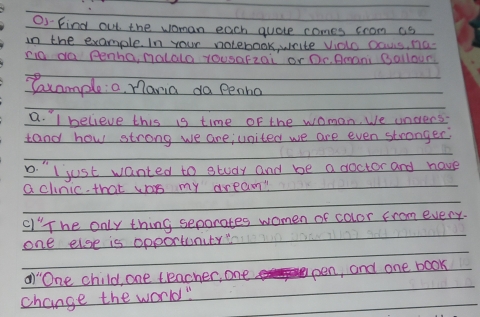 05- Find out the woman each quote comes from as
in the example. In your notebook, write Viola Davis, Ma-
ria da Penha, Malala Yousafzai or Dr. Amani Ballour.
Example: a. Maria da Penha
a. "I believe this is time of the woman. We unders-
tand how strong we are; united we are even stronger.
b. "I just wanted to study and be a doctor and have
a clinic. that was my dream"
c) "The only thing separates women of color from every-
one else is opportunity"
d) "One child, one teacher, one pen, and one book
change the world".